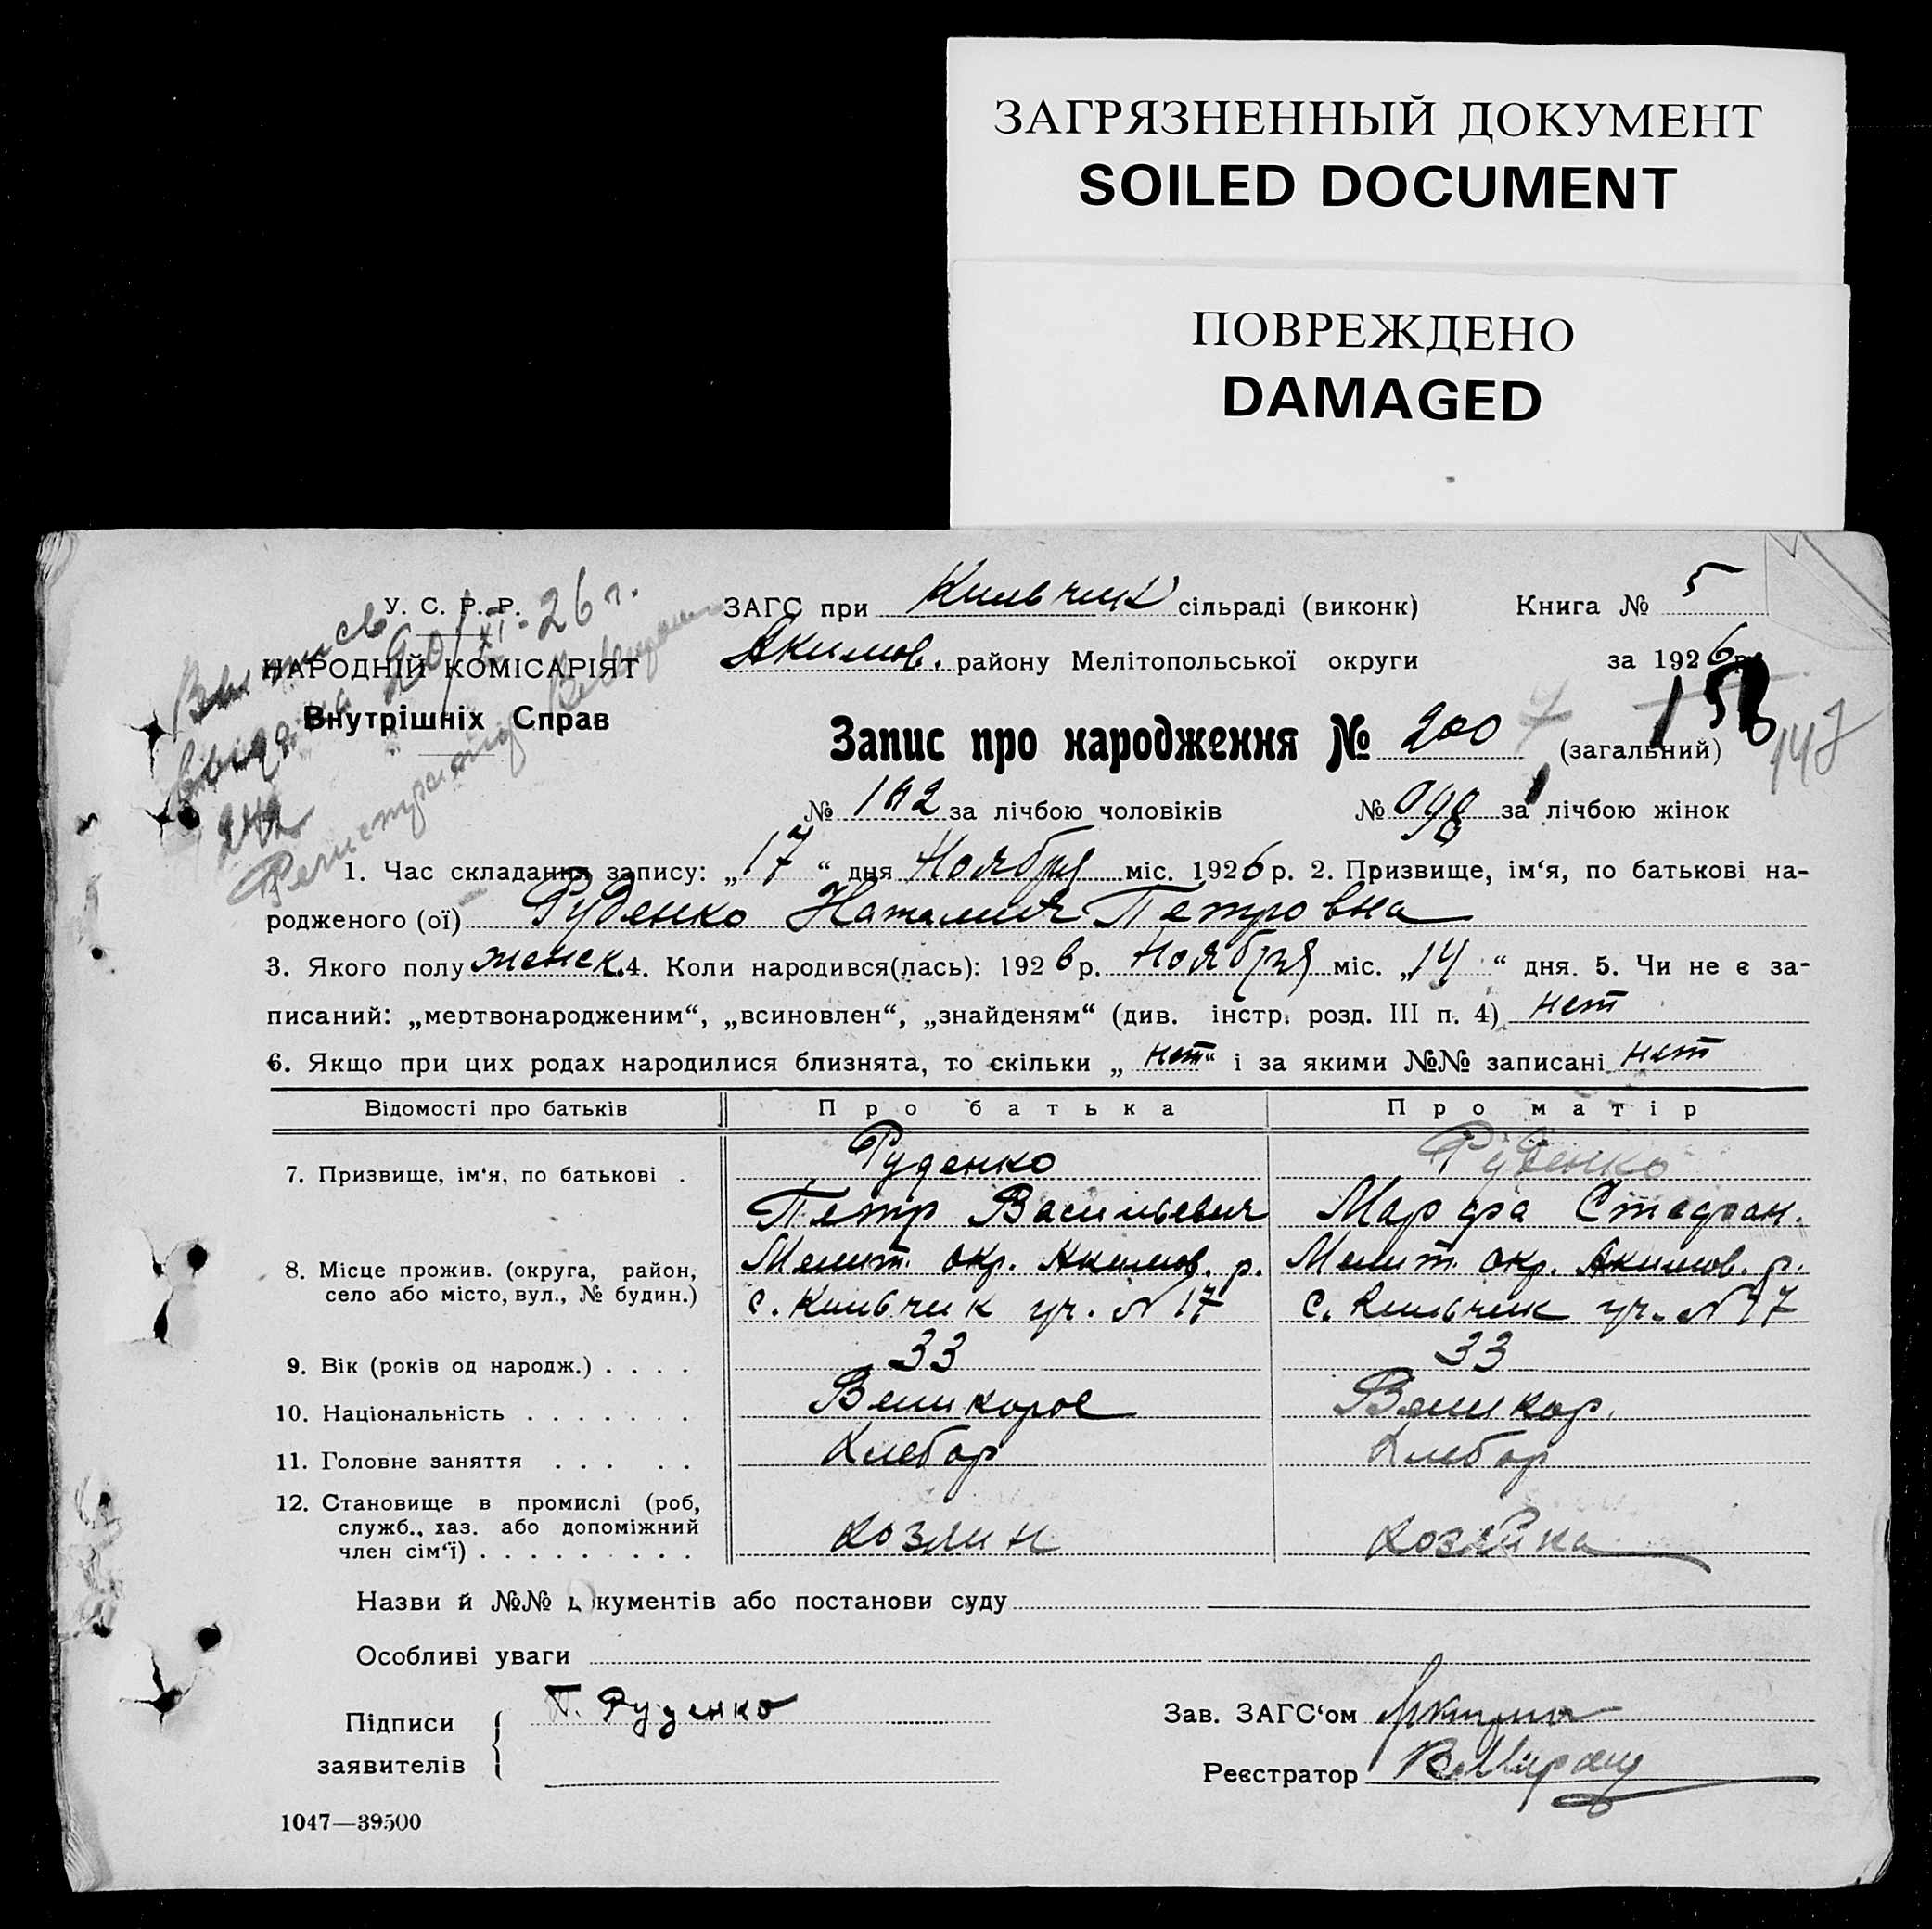 ЗАГРЯЗНЕННЫЙ ДОКУМЕНТ
SOILED DOCUMENT
ПОВРЕЖДЕНО
DAMAGED
У. С. Р. Р.
НАРОДНІЙ КОМІСАРІЯТ
Внутрішніх Справ
Выпись
выдана 20/XI-26 г.
Регистратор
ЗАГС при Кильчик сільраді (виконк) Книга № 5
Акимов. району Мелітопольської округи за 1926 р.
158
147
Запис про народження № 200 (загальний)
№ 102 за лічбою чоловіків № 098 за лічбою жінок
1. Час складання запису: „17“ дня Ноября міс. 1926 р. 2. Призвище, ім‘я, по батькові на-
родженого (ої) Руденко Наталия Петровна
3. Якого полу женск. 4. Коли народився(лась): 1926 р. Ноября міс. „14“ дня. 5. Чи не є за-
писаний: „мертвонародженим“, „всиновлен“, „знайденям“ (див. інстр. розд. III п. 4) нет
6. Якщо при цих родах народилися близнята, то скільки „нет“ і за якими №№ записані нет
Відомості про батьків Про батька Про матір
7. Призвище, ім‘я, по батькові . Руденко Руденко
Петр Васильевич Марфа Стефан.
8. Місце прожив. (округа, район, Мелит. окр. Акимов. р. Мелит. окр. Акимов. р.
село або місто, вул., № будин.) с. Кильчик уч. N 17 с. Кильчик уч. N 17
9. Вік (років од народж.) . . . . 33 33
10. Національність . . . . . . . Великорос Великор.
11. Головне заняття . . . . . Хлебор Хлебор
12. Становище в промислі (роб,
служб., хаз. або допоміжний
член сім‘ї) . . . . . . . . . Хозяин Хозяйка
Назви й №№ документів або постанови суду
Особливі уваги
Підписи П. Руденко Зав. ЗАГС‘ом
заявителів Реєстратор
1047—39500